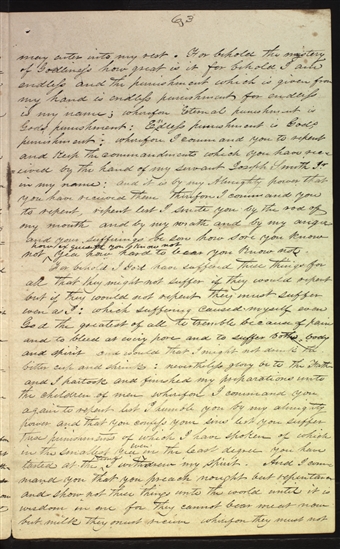 63
may enter into my rest. For behold the mystery
of Godliness how great is it for behold I am
endless and the punishment which is given from
my hand is endless punishment for endless
is my name; wherefore Eternal punishment is
Gods punishment; Endless punishment is Gods
punishment; wherefore I command you to repent
and keep the commandments which you have rece
ived by the hand of my servant Joseph Smith Jr
in my name: and it is by my Almighty power that
you have received them therefore I command you
to repent, repent lest I smite you by the rod of
my mouth and by my wrath and by my anger
and your sufferings be sore how sore you know
not how exquisite you know not
not yea how hard to bear you know not
For behold I God have suffered these things for
all that they might not suffer if they would repent
but if they would not repent they must suffer
even as I: which suffering caused myself even
God the greatest of all to tremble because of pain
and to bleed at every pore and to suffer both body
and spirit and would that I might not drink the
bitter cup and shrink: nevertheless glory be to the Father
and I partook and finished my preparations unto
the children of men wherefore I command you
again to repent lest I humble you by my almighty
power and that you confess your sins lest you suffer
these punishments of which I have spoken of which
in the smallest yea even in the least degree you have
tasted at the time I withdrew my spirit. And I com
mand you that you preach nought but repentance
and show not these things unto the world until it is
wisdom in me for they cannot bear meat now
but milk they must receive wherefore they must not